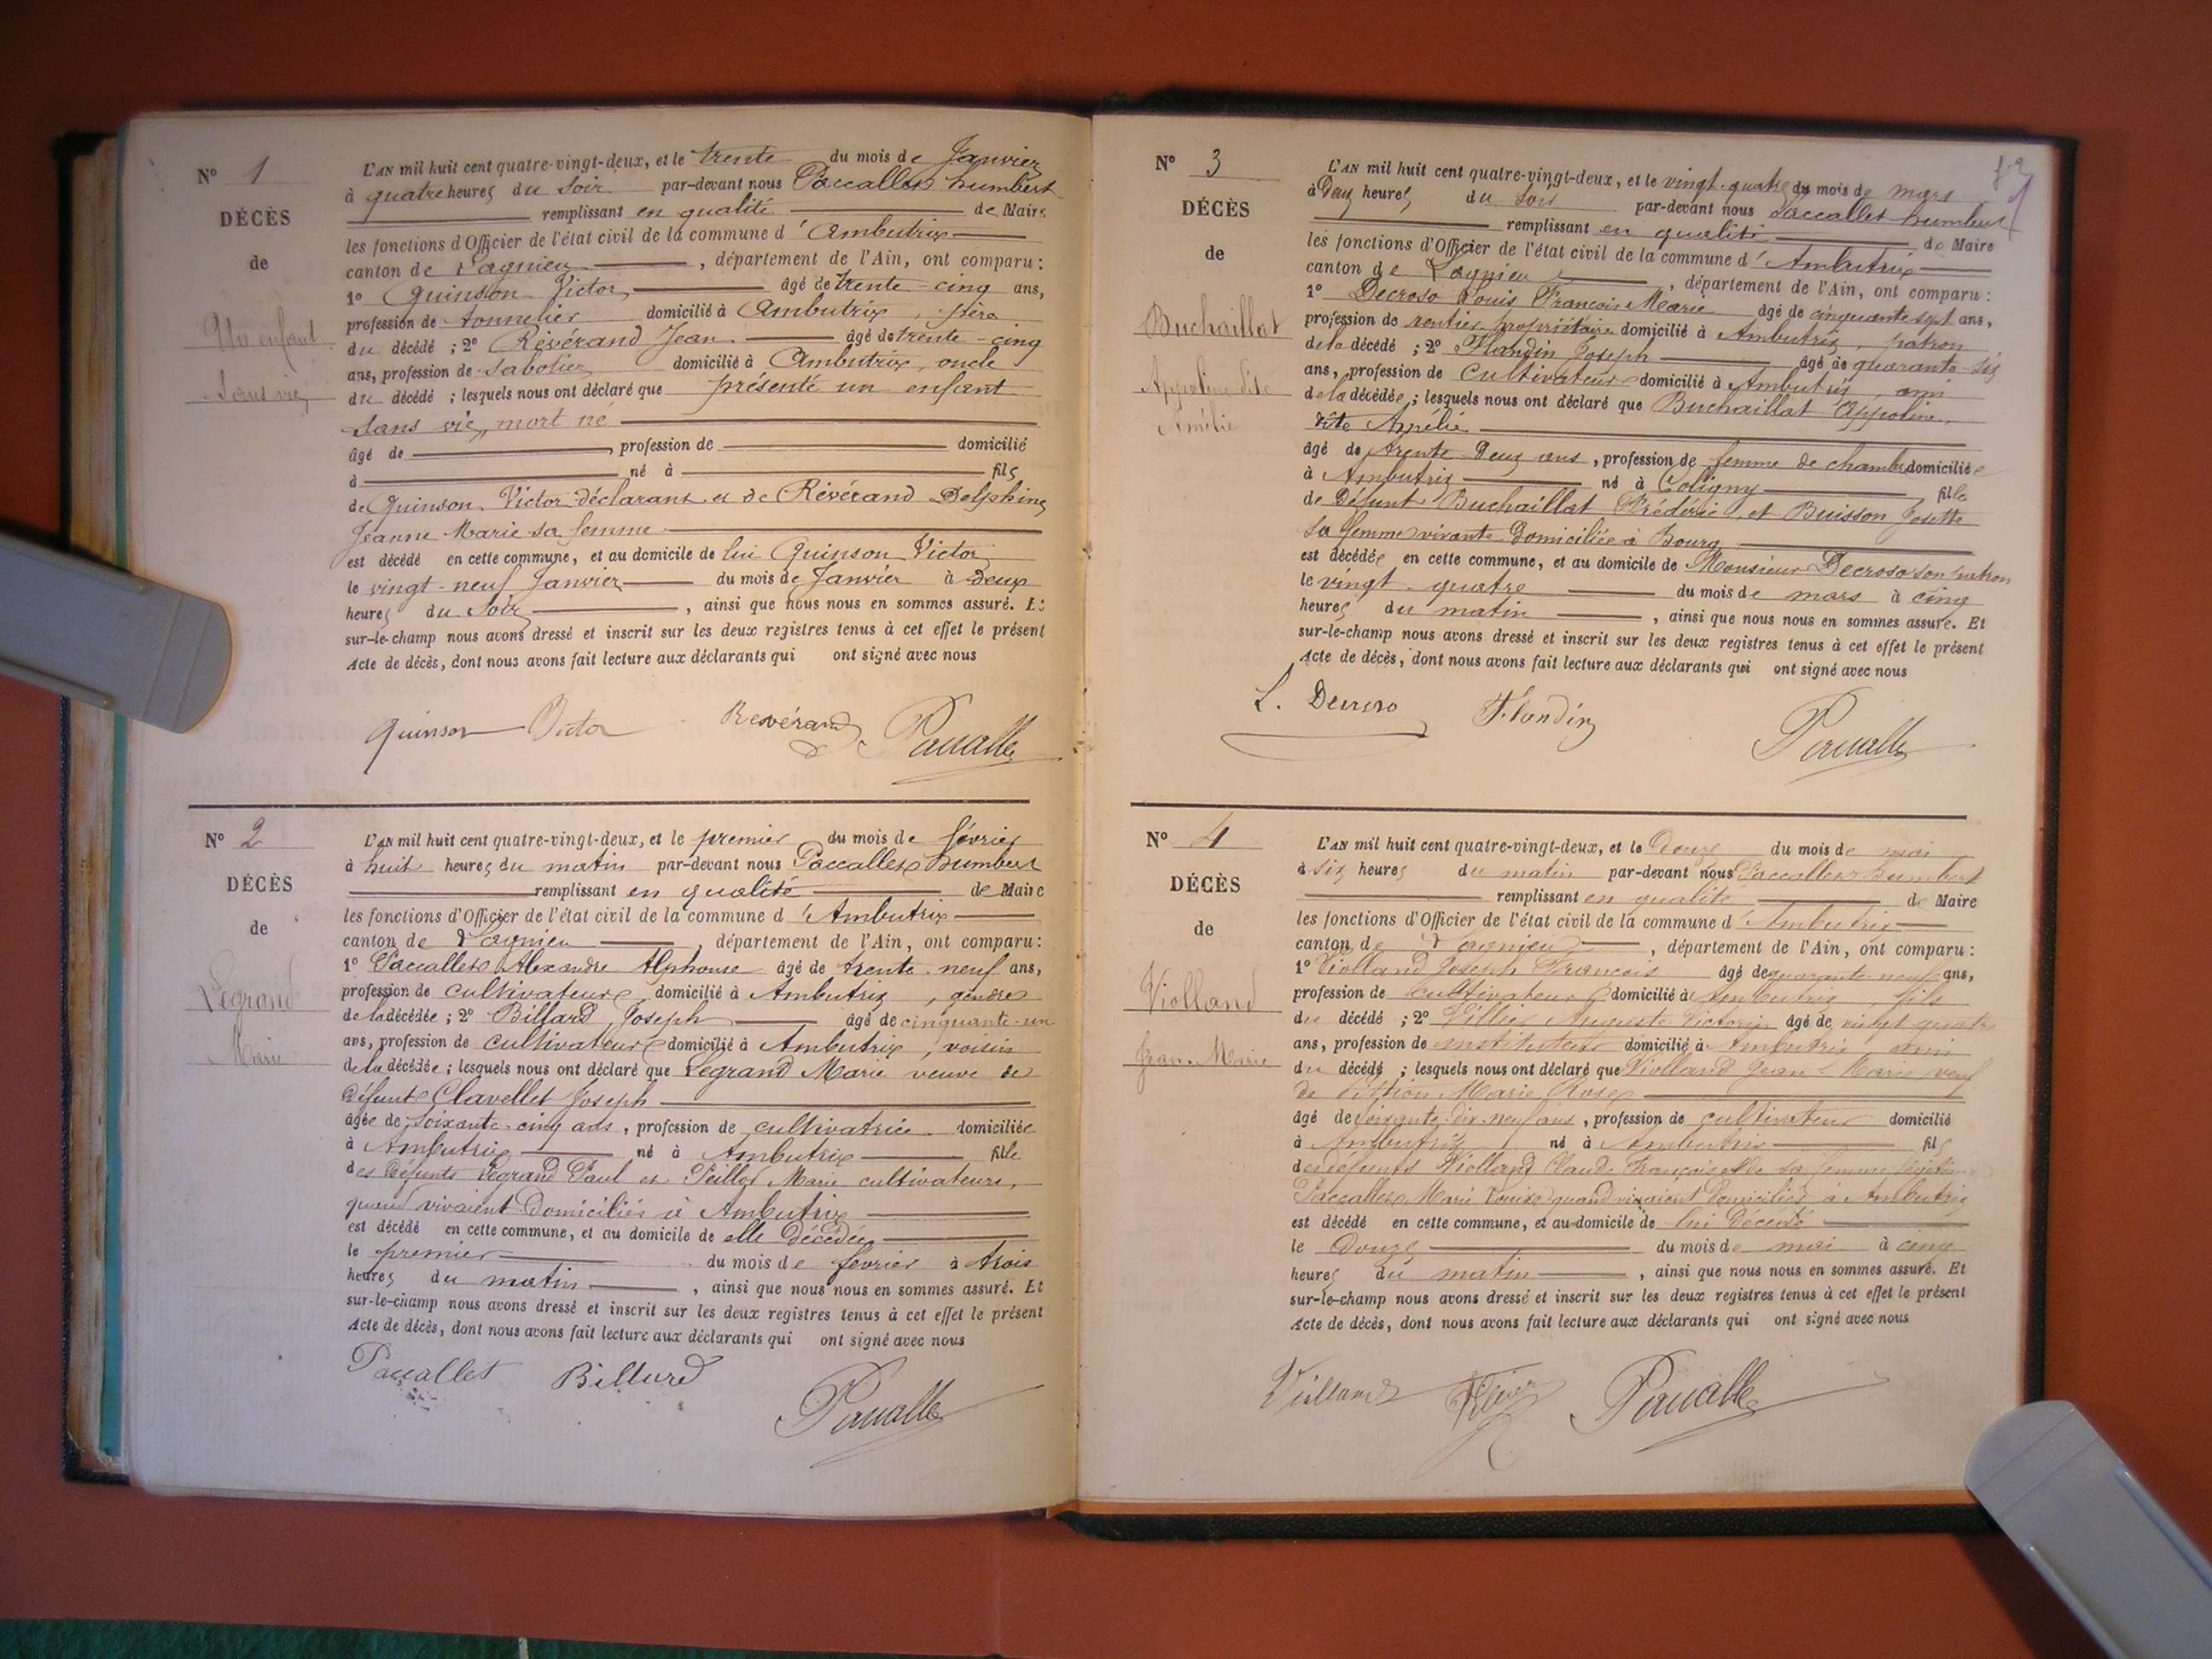 N° 1
DÉCÈS
de
Un enfant
Sans vie
L'AN mil huit cent quatre-vingt-deux, et le trente du mois de Janvier
à quatre heures du soir par-devant nous Paccallet humbert
remplissant en qualité de Maire
les fonctions d'Officier de l'état civil de la commune d'Ambutrix
canton de Lagnieu, département de l'Ain, ont comparu :
1° Quinson Victor âgé de trente-cinq ans,
profession de tonnelier domicilié à Ambutrix, père
du décédé ; 2° Révérand Jean âgé de trente-cinq
ans, profession de sabotier domicilié à Ambutrix, oncle
du décédé ; lesquels nous ont déclaré que présenté un enfant
sans vie, mort né
âgé de , profession de domicilié
à né à fils
de Quinson Victor déclarant et de Révérand Delphine
Jeanne Marie sa femme
est décédé en cette commune, et au domicile de lui Quinson Victor
le vingt-neuf Janvier du mois de Janvier à deux
heures du soir, ainsi que nous nous en sommes assuré. Et
sur-le-champ nous avons dressé et inscrit sur les deux registres tenus à cet effet le présent
Acte de décès, dont nous avons fait lecture aux déclarants qui ont signé avec nous
Quinson Victor Revérand Paccallet
N° 2
DÉCÈS
de
Legrand
Marie
L'AN mil huit cent quatre-vingt-deux, et le premier du mois de février
à huit heures du matin par-devant nous Paccallet Humbert
remplissant en qualité de Maire
les fonctions d'Officier de l'état civil de la commune d'Ambutrix
canton de Lagnieu, département de l'Ain, ont comparu :
1° Paccallet Alexandre Alphonse âgé de trente-neuf ans,
profession de cultivateur domicilié à Ambutrix, gendre
de la décédée ; 2° Billard Joseph âgé de cinquante-un
ans, profession de cultivateur domicilié à Ambutrix, voisin
de la décédée ; lesquels nous ont déclaré que Legrand Marie veuve de
défunt Clavellet Joseph
âgée de soixante-cinq ans, profession de cultivatrice domiciliée
à Ambutrix né à Ambutrix fille
des défunts Legrand Paul et Peillod Marie cultivateurs,
quand vivaient domiciliés à Ambutrix
est décédé en cette commune, et au domicile de elle décédée
le premier du mois de février à trois
heures du matin, ainsi que nous nous en sommes assuré. Et
sur-le-champ nous avons dressé et inscrit sur les deux registres tenus à cet effet le présent
Acte de décès, dont nous avons fait lecture aux déclarants qui ont signé avec nous
Paccallet Billard
Paccallet
N° 3
DÉCÈS
de
Buchaillat
Appoline dite
Amélie
L'AN mil huit cent quatre-vingt-deux, et le vingt-quatre du mois de mars
à deux heures du soir par-devant nous Paccallet humbert
remplissant en qualité de Maire
les fonctions d'Officier de l'état civil de la commune d'Ambutrix
canton de Lagnieu, département de l'Ain, ont comparu :
1° Decroso Louis François Marie âgé de cinquante sept ans,
profession de rentier propriétaire domicilié à Ambutrix, patron
de la décédé ; 2° Flandin Joseph âgé de quarante-six
ans, profession de cultivateur domicilié à Ambutrix, ami
de la décédée ; lesquels nous ont déclaré que Buchaillat Appoline,
dite Amélie
âgé de trente deux ans, profession de femme de chambre domiciliée
à Ambutrix né à Coligny fille
de défunt Buchaillat Frédéric et Buisson Josette
sa femme vivante domiciliée à Bourg
est décédée en cette commune, et au domicile de Monsieur Decroso son patron
le vingt-quatre du mois de mars à cinq
heures du matin, ainsi que nous nous en sommes assuré. Et
sur-le-champ nous avons dressé et inscrit sur les deux registres tenus à cet effet le présent
Acte de décès, dont nous avons fait lecture aux déclarants qui ont signé avec nous
L. Decroso Flandin Paccallet
N° 4
DÉCÈS
de
Violland
Jean-Marie
L'AN mil huit cent quatre-vingt-deux, et le douze du mois de mai
à six heures du matin par-devant nous Paccallet Humbert
remplissant en qualité de Maire
les fonctions d'Officier de l'état civil de la commune d'Ambutrix
canton de Lagnieu, département de l'Ain, ont comparu :
1° Violland Joseph François âgé de quarante-neuf ans,
profession de cultivateur domicilié à Ambutrix, fils
du décédé ; 2° Auguste Victorin âgé de vingt quatre
ans, profession de instituteur domicilié à Ambutrix ami
du décédé ; lesquels nous ont déclaré que Violland Jean-Marie veuf
de Marie Rose
âgé de soixante-dix-neuf ans, profession de cultivateur domicilié
à Ambutrix né à Ambutrix fils
des défunts Violland Claude François et de sa femme légitime
Paccallet Marie Louise quand vivaient domiciliés à Ambutrix
est décédé en cette commune, et au domicile de lui décédé
le douze du mois de mai à cinq
heures du matin, ainsi que nous nous en sommes assuré. Et
sur-le-champ nous avons dressé et inscrit sur les deux registres tenus à cet effet le présent
Acte de décès, dont nous avons fait lecture aux déclarants qui ont signé avec nous
Violland Paccallet